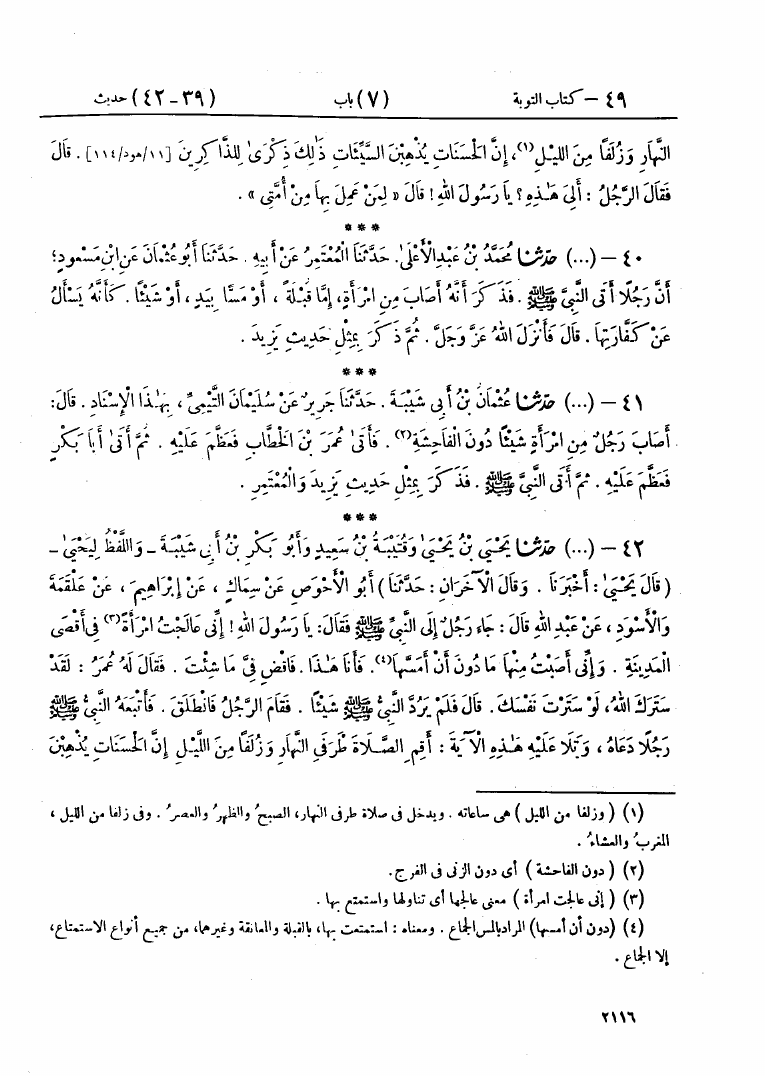 ٤٩ – كتاب التوبة (٧) باب (٣٩ – ٤٢) حديث
النَّهَارِ وَزُلَفًا مِنَ اللَّيْلِ(١)، إِنَّ الْحَسَنَاتِ يُذْهِبْنَ السَّيِّئَاتِ ذَٰلِكَ ذِكْرَىٰ لِلذَّاكِرِينَ [١١/هود/١١٤]. قَالَ
فَقَالَ الرَّجُلُ : أَلِىَ هَـٰذِهِ؟ يَا رَسُولَ اللهِ! قَالَ « لِمَنْ عَمِلَ بِهَا مِنْ أُمَّتِى » .
***
٤٠ – (...) حَدَّثَنَا مُحَمَّدُ بْنُ عَبْدِالْأَعْلَىٰ. حَدَّثَنَا الْمُعْتَمِرُ عَنْ أَبِيهِ . حَدَّثَنَا أَبُو عُثْمَانَ عَنِ ابْنِ مَسْعُودٍ؛
أَنَّ رَجُلًا أَتَى النَّبِيَّ ﷺ . فَذَكَرَ أَنَّهُ أَصَابَ مِنِ امْرَأَةٍ، إِمَّا قُبْلَةً ، أَوْ مَسًّا بِيَدٍ، أَوْ شَيْئًا . كَأَنَّهُ يَسْأَلُ
عَنْ كَفَّارَتِهَا . قَالَ فَأَنْزَلَ اللهُ عَزَّ وَجَلَّ . ثُمَّ ذَكَرَ بِمِثْلِ حَدِيثِ يَزِيدَ .
***
٤١ – (...) حَدَّثَنَا عُثْمَانُ بْنُ أَبِي شَيْبَةَ . حَدَّثَنَا جَرِيرٌ عَنْ سُلَيْمَانَ التَّيْمِيِّ ، بِهَـٰذَا الْإِسْنَادِ . قَالَ:
أَصَابَ رَجُلٌ مِنِ امْرَأَةٍ شَيْئًا دُونَ الْفَاحِشَةِ(٢) . فَأَتَىٰ عُمَرَ بْنَ الْخَطَّابِ فَعَظَّمَ عَلَيْهِ . ثُمَّ أَتَىٰ أَبَا بَكْرٍ
فَعَظَّمَ عَلَيْهِ . ثُمَّ أَتَى النَّبِيَّ ﷺ . فَذَكَرَ بِمِثْلِ حَدِيثِ يَزِيدَ وَالْمُعْتَمِرِ .
***
٤٢ – (...) حَدَّثَنَا يَحْيَى بْنُ يَحْيَىٰ وَقُتَيْبَةُ بْنُ سَعِيدٍ وَأَبُو بَكْرِ بْنُ أَبِي شَيْبَةَ – وَاللَّفْظُ لِيَحْيَىٰ –
( قَالَ يَحْيَىٰ : أَخْبَرَنَا . وَقَالَ الْآخَرَانِ : حَدَّثَنَا ) أَبُو الْأَحْوَصِ عَنْ سِمَاكٍ ، عَنْ إِبْرَاهِيمَ ، عَنْ عَلْقَمَةَ
وَالْأَسْوَدِ ، عَنْ عَبْدِ اللهِ قَالَ : جَاءَ رَجُلٌ إِلَى النَّبِيِّ ﷺ فَقَالَ: يَا رَسُولَ اللهِ! إِنِّى عَالَجْتُ امْرَأَةً(٣) فِى أَقْصَى
الْمَدِينَةِ . وَإِنِّى أَصَبْتُ مِنْهَا مَا دُونَ أَنْ أَمَسَّهَا(٤). فَأَنَا هَـٰذَا. فَاقْضِ فِيَّ مَا شِئْتَ . فَقَالَ لَهُ عُمَرُ : لَقَدْ
سَتَرَكَ اللهُ، لَوْ سَتَرْتَ نَفْسَكَ. قَالَ فَلَمْ يَرُدَّ النَّبِيُّ ﷺ شَيْئًا . فَقَامَ الرَّجُلُ فَانْطَلَقَ . فَأَتْبَعَهُ النَّبِيُّ ﷺ
رَجُلًا دَعَاهُ ، وَتَلَا عَلَيْهِ هَـٰذِهِ الْآيَةَ : أَقِمِ الصَّلَاةَ طَرَفَىِ النَّهَارِ وَزُلَفًا مِنَ اللَّيْلِ إِنَّ الْحَسَنَاتِ يُذْهِبْنَ
(١) ( وزلفا من الليل ) هى ساعاته . ويدخل فى صلاة طرفى النهار، الصبحُ والظهرُ والعصرُ . وفى زلفا من الليل ،
المغربُ والعشاءُ .
(٢) ( دون الفاحشة ) أى دون الزنى فى الفرج.
(٣) ( إنى عالجت امرأة ) معنى عالجها أى تناولها واستمتع بها .
(٤) (دون أن أمسها) المراد بالمس الجماع . ومعناه : استمتعت بها، بالقبلة والمعانقة وغيرهما، من جميع أنواع الاستمتاع،
إلا الجماع .
٢١١٦